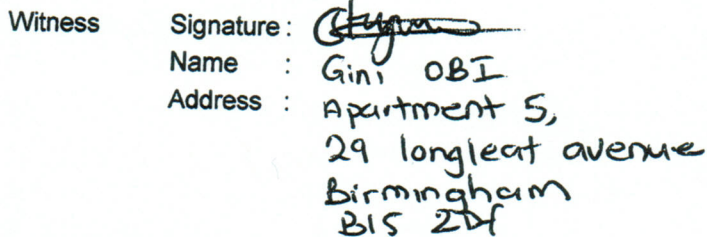 Witness Signature :
Name : Gini OBI
Address : Apartment 5,
29 longleat avenue
Birmingham
B15 2Df